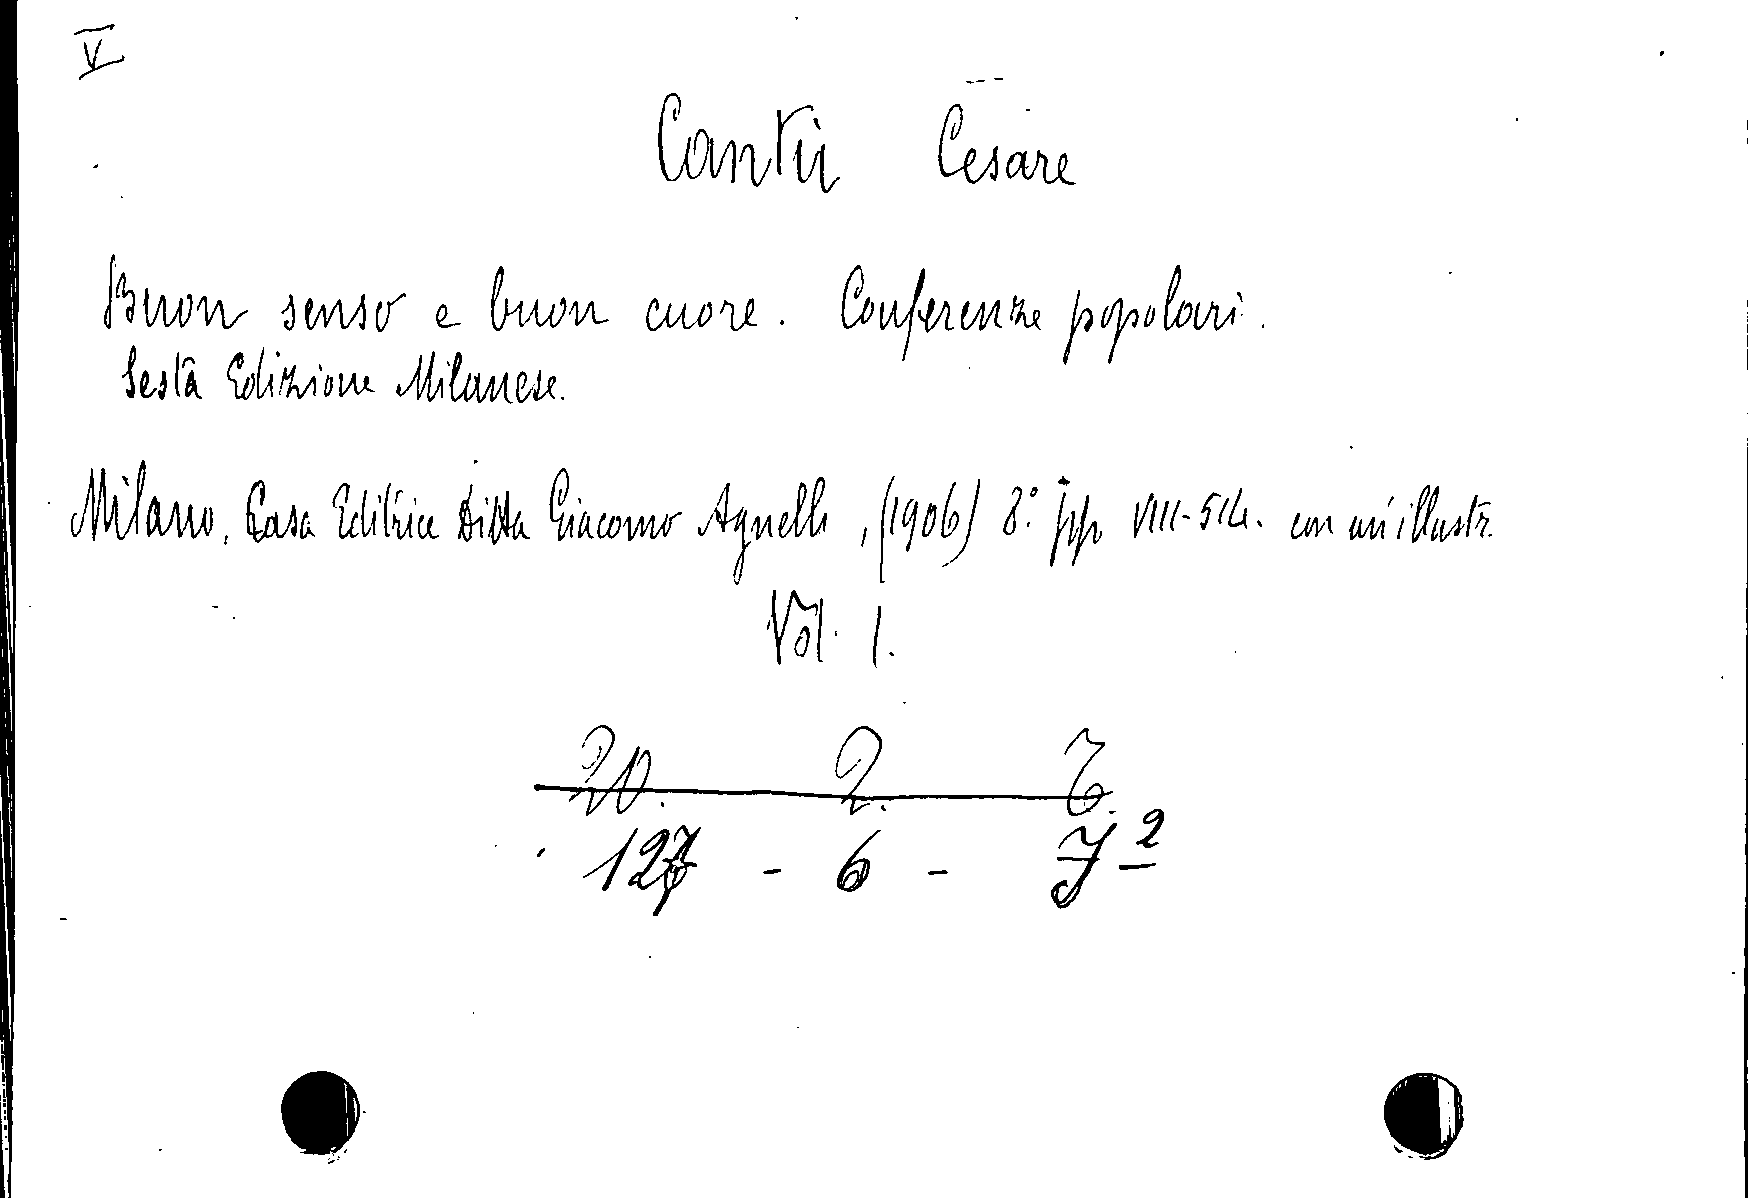 V
Cantù Cesare
Buon senso e buon cuore. Conferenze popolari.
Sesta Edizione Milanese.
Milano, Casa Editrice Ditta Giacomo Agnelli, (1906) 8° pp. VIII-514. con un'illustr.
Vol. 1.
20. 2. 
127 - 6 - J 2